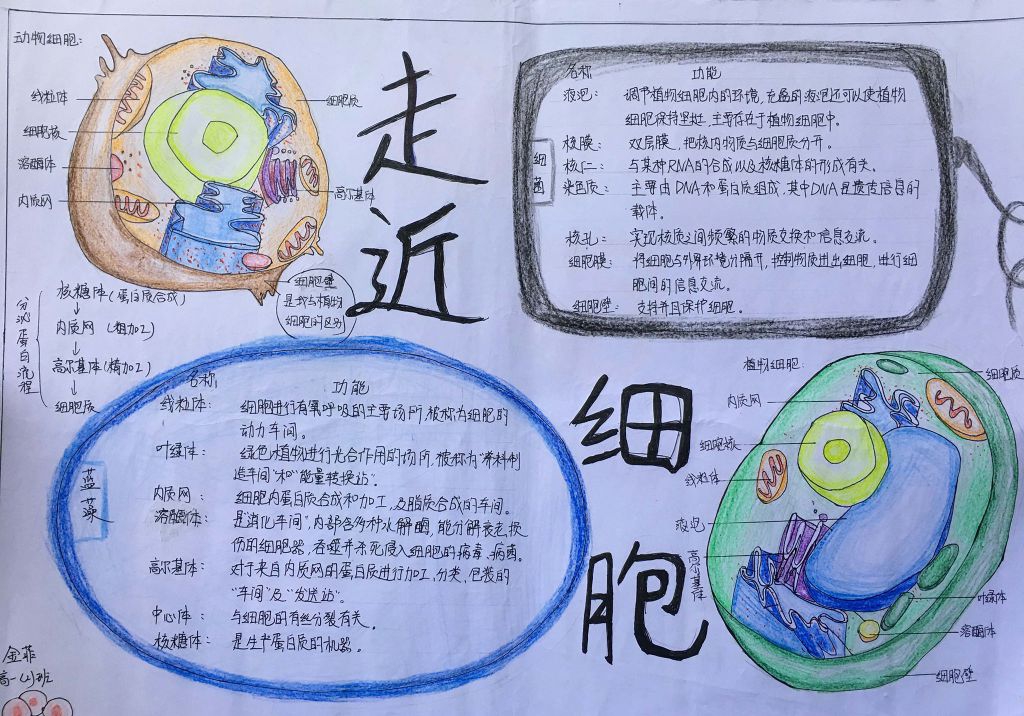 动物细胞:
线粒体
细胞核
溶酶体
内质网
细胞质
高尔基体
细胞壁
是我与植物
细胞的区分
分泌蛋白流程
核糖体(蛋白质合成)
↓
内质网(粗加工)
↓
高尔基体(精加工)
↓
细胞质
走近
细胞
细菌
名称 功能
液泡: 调节植物细胞内的环境,充盈的液泡还可以使植物
细胞保持坚挺,主要存在于植物细胞中。
核膜: 双层膜,把核内物质与细胞质分开。
核仁: 与某种RNA的合成以及核糖体的形成有关。
染色质: 主要由DNA和蛋白质组成,其中DNA是遗传信息的
载体。
核孔: 实现核质之间频繁的物质交换和信息交流。
细胞膜: 将细胞与外界环境分隔开,控制物质进出细胞,进行细
胞间的信息交流。
细胞壁: 支持并且保护细胞。
蓝藻
名称 功能
线粒体: 细胞进行有氧呼吸的主要场所,被称为细胞的
动力车间。
叶绿体: 绿色植物进行光合作用的场所,被称为“养料制
造车间”和“能量转换站”。
内质网: 细胞内蛋白质合成和加工,及脂质合成的车间。
溶酶体: 是“消化车间”,内部含多种水解酶,能分解衰老损
伤的细胞器,吞噬并杀死侵入细胞的病毒、病菌。
高尔基体: 对于来自内质网的蛋白质进行加工,分类,包装的
“车间”及“发送站”。
中心体: 与细胞的有丝分裂有关。
核糖体: 是生产蛋白质的机器。
植物细胞:
内质网
细胞核
线粒体
液泡
高尔基体
细胞质
叶绿体
溶酶体
细胞壁
金菲
高一(2)班